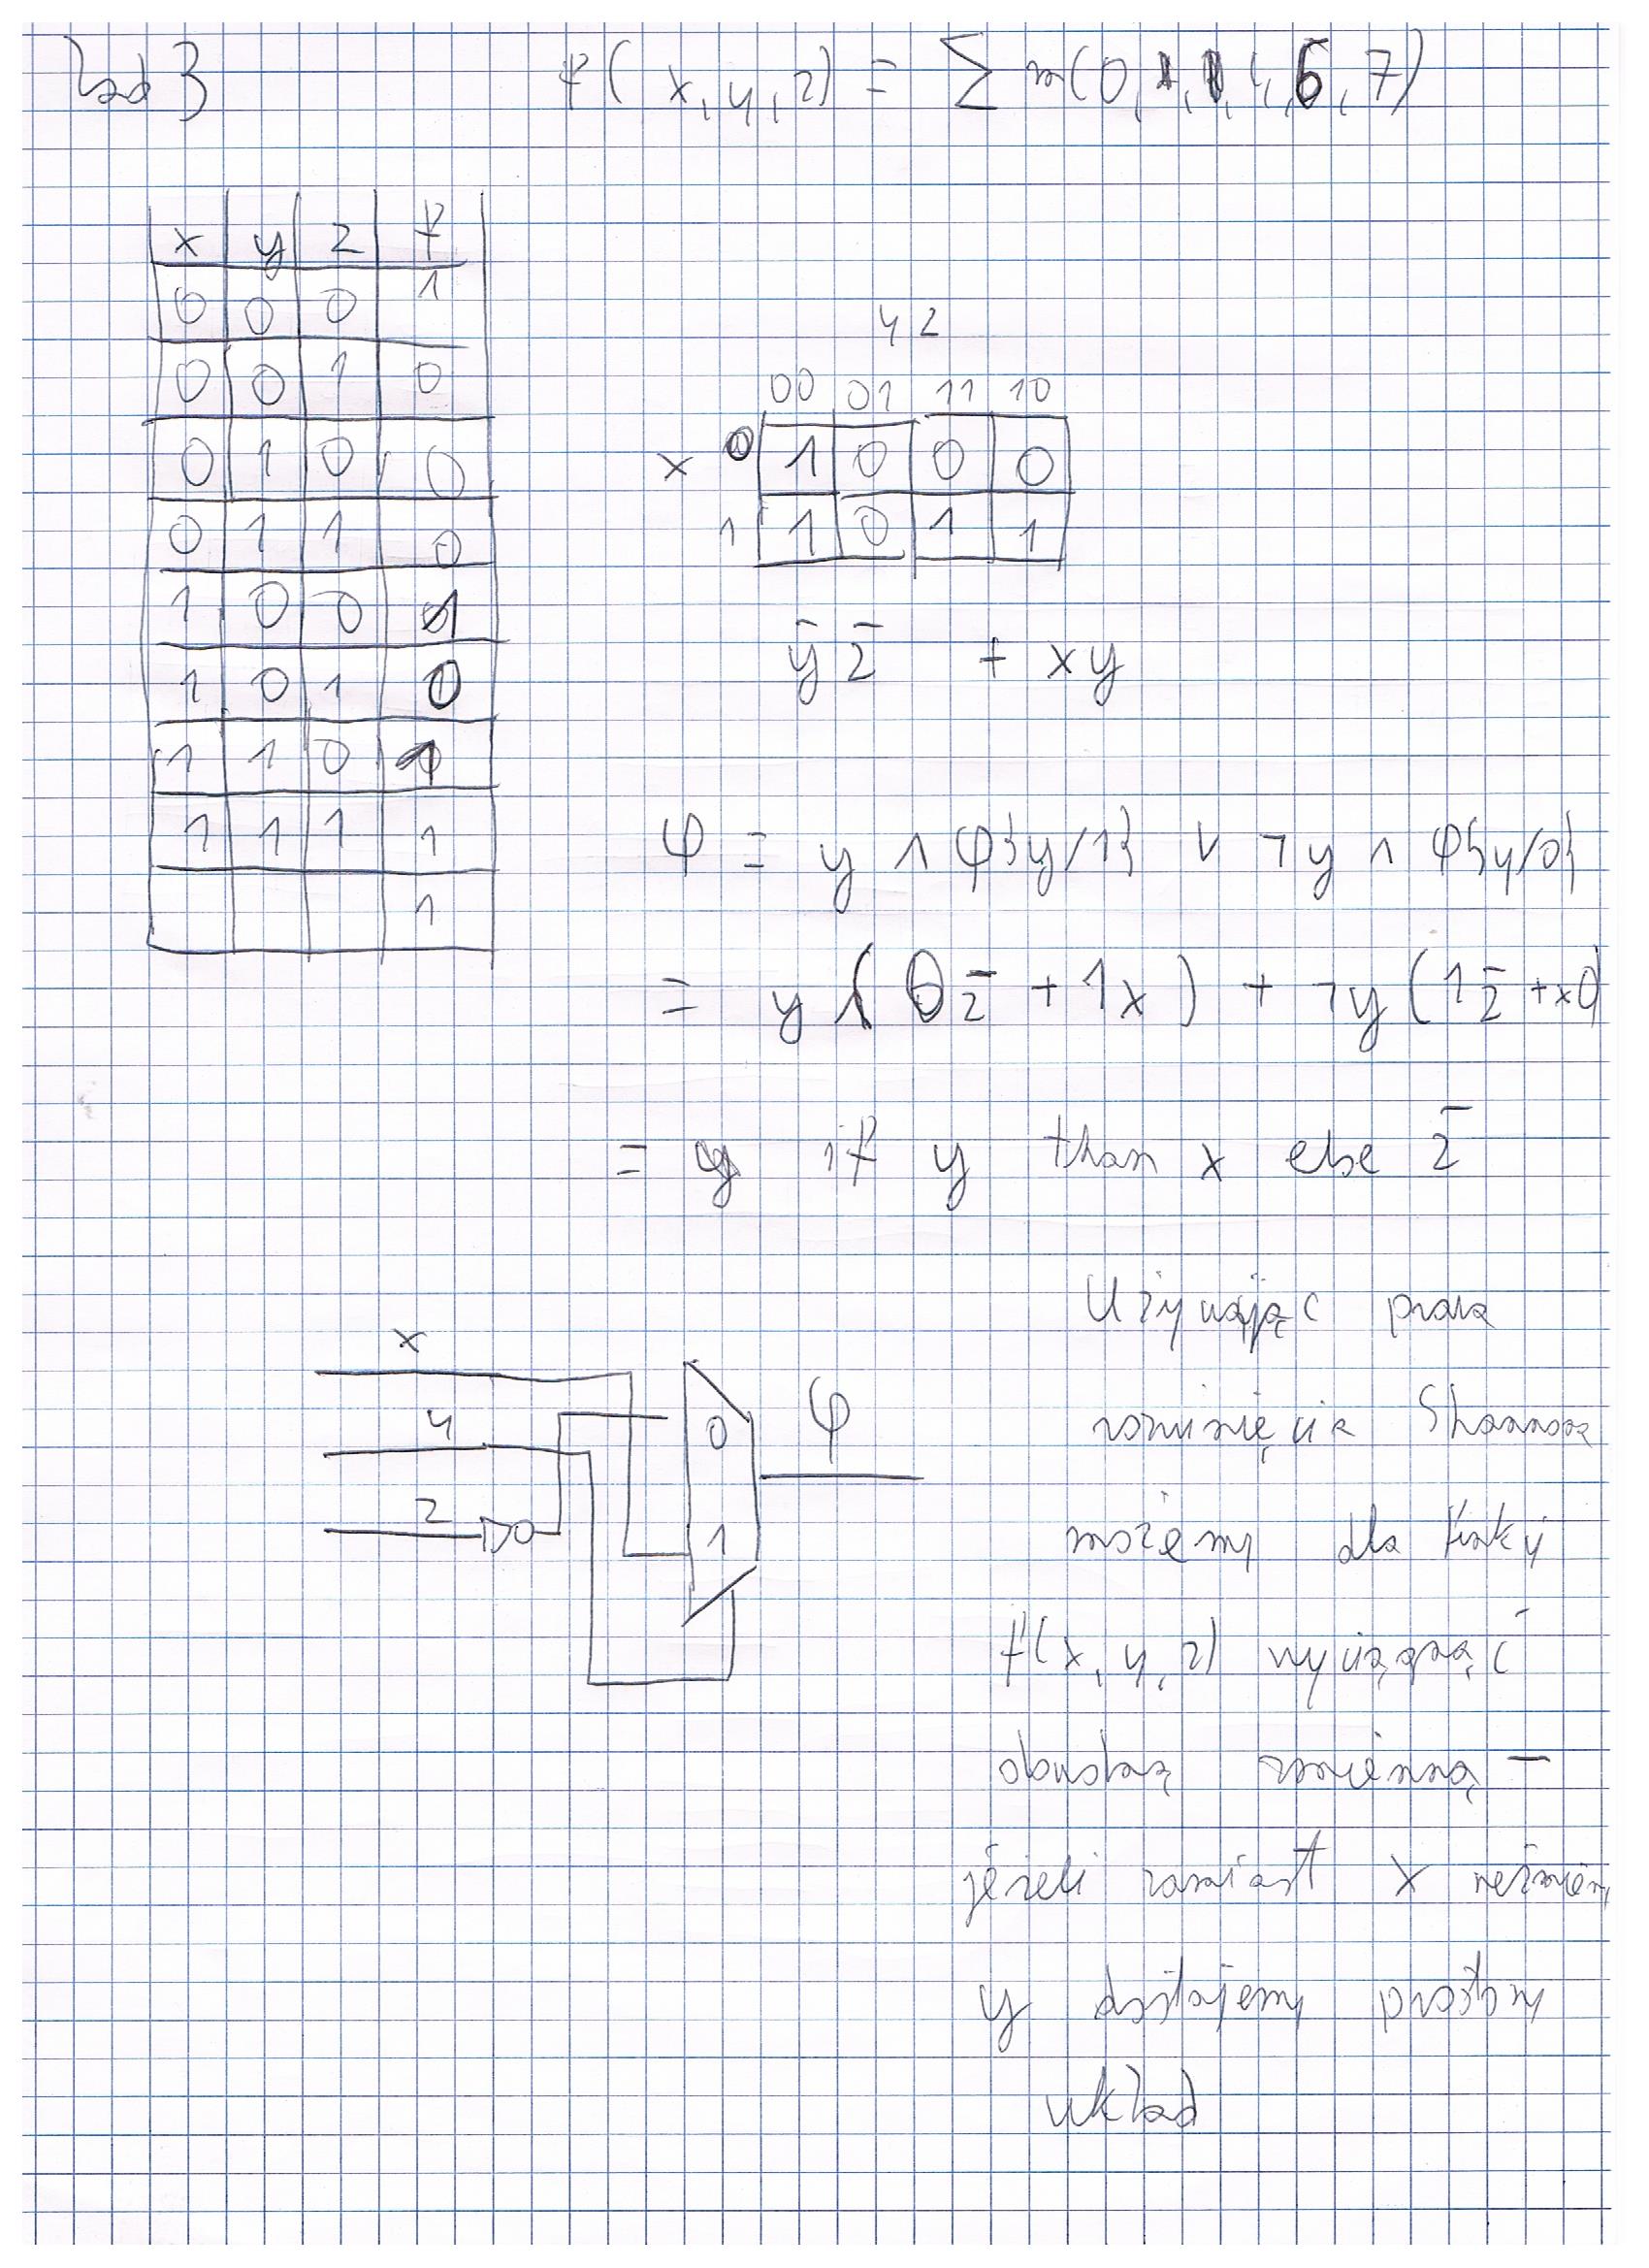 Zad 3
f( x, y, z) = ∑ m(0, 4, 6, 7)
x y z f
0 0 0 1
0 0 1 0
0 1 0 0
0 1 1 0
1 0 0 1
1 0 1 0
1 1 0 1
1 1 1 1
1
y z
00 01 11 10
x 0 1 0 0 0
1 1 0 1 1
ȳ z̄ + xy
φ = y ∧ φ{y/1} ∨ ¬y ∧ φ{y/0}
= y ( 0z̄ + 1x ) + ¬y (1z̄ + x0)
= if y than x else z̄
x
y
z
0
1
φ
Używając prawa
rozwinięcia Shannona
możemy dla
f(x, y, z) wyciągnąć
dowolną zmienną –
jeżeli zamiast x weźmiemy
y dostajemy
układ